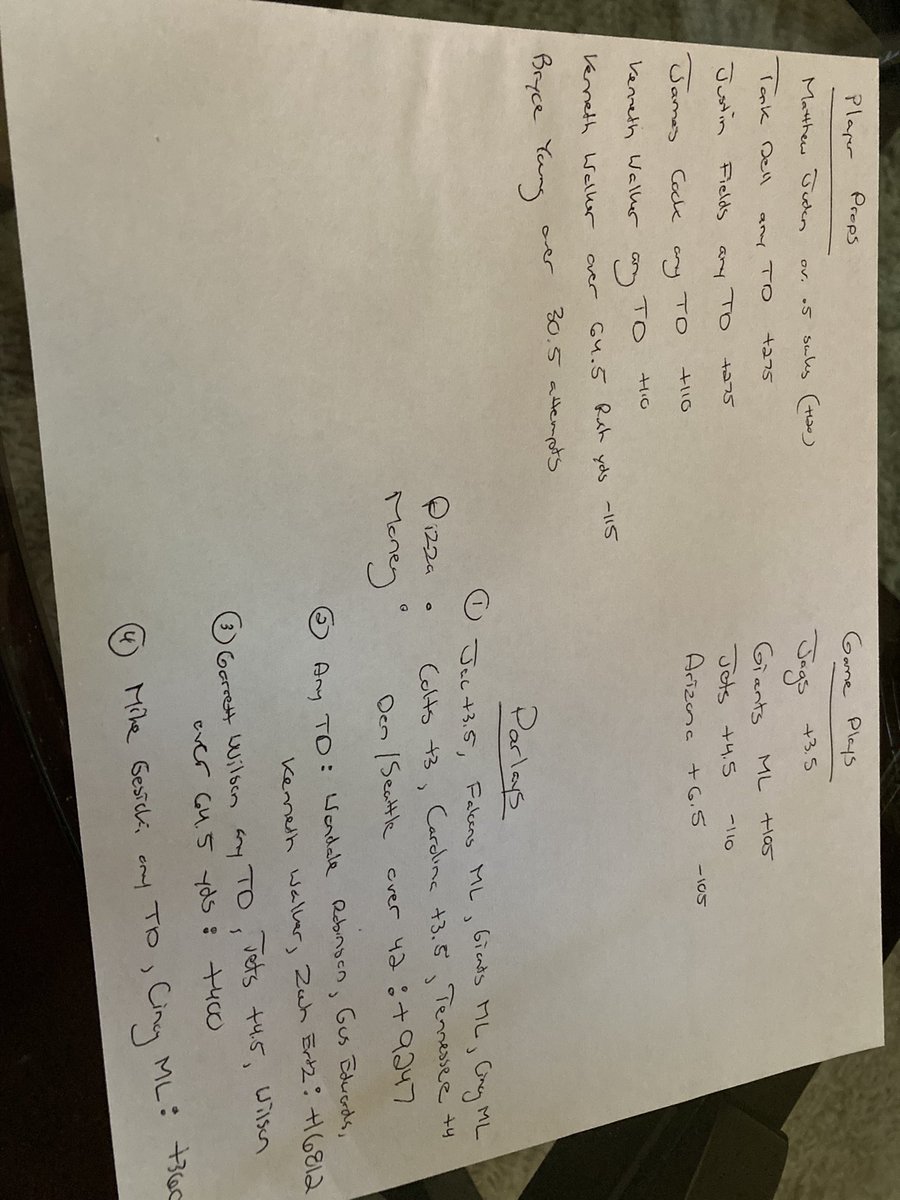 Player Props
Matthew Judon ov. .5 sacks (+120)
Tank Dell any TD +275
Justin Fields any TD +275
James Cook any TD +110
Kenneth Walker any TD +110
Kenneth Walker over 64.5 Rush yds -115
Bryce Young over 30.5 attempts
Game Plays
Jags +3.5
Giants ML +105
Jets +4.5 -110
Arizona +6.5 -105
Parlays
① Jac +3.5, Falcons ML, Giants ML, Cincy ML
Pizza : Colts +3, Carolina +3.5, Tennessee +4
Money : Den/Seattle over 42 : +9247
② Any TD: Wandale Robinson, Gus Edwards,
Kenneth Walker, Zach Ertz: +16812
③ Garrett Wilson any TD, Jets +4.5, Wilson
over 64.5 yds : +400
④ Mike Gesicki any TD, Cincy ML: +360